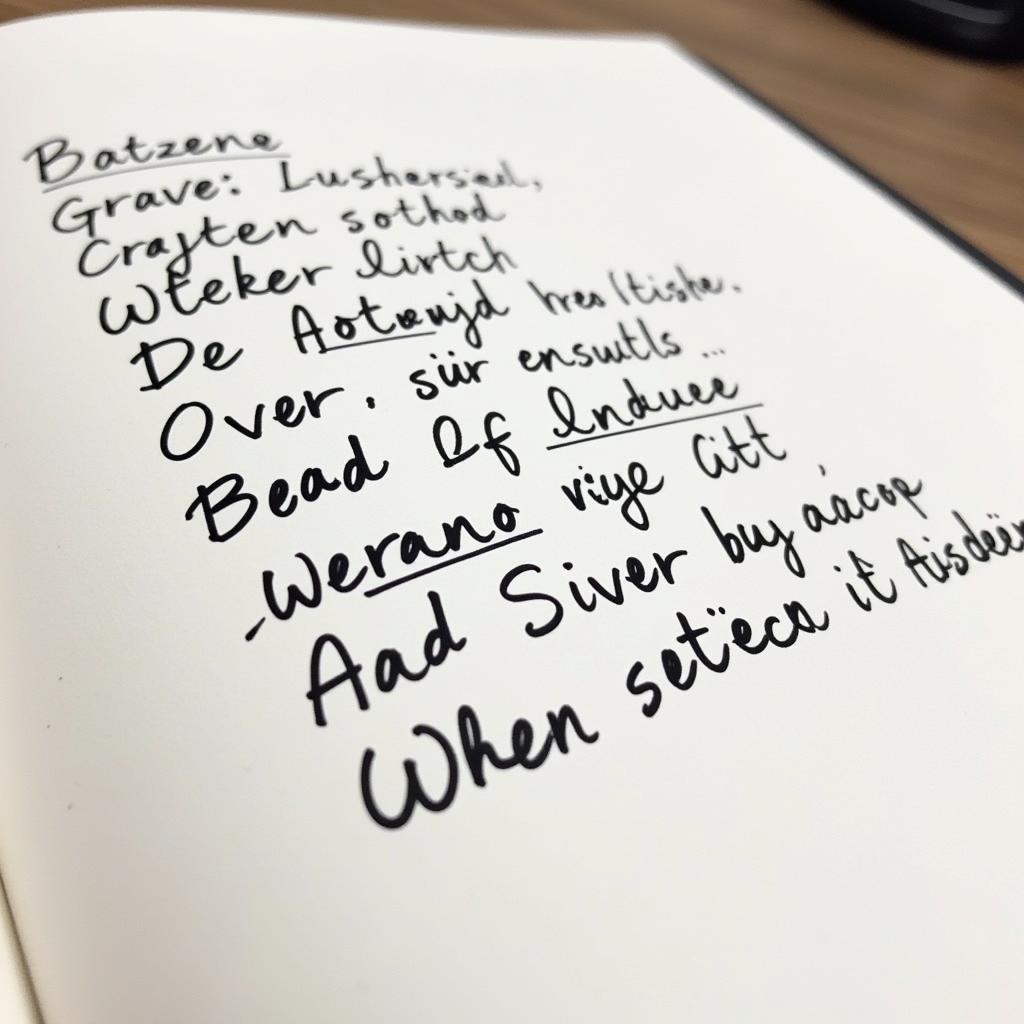 Batzene
Grave: Lushersiel,
Crajten sothod
Wteker lirtch
De Aotewjd
Over. süir ensutls ...
Bead Of Induee
-Werano viye Citt
Aad Siver buy aácop
When setëca it Aisdeër